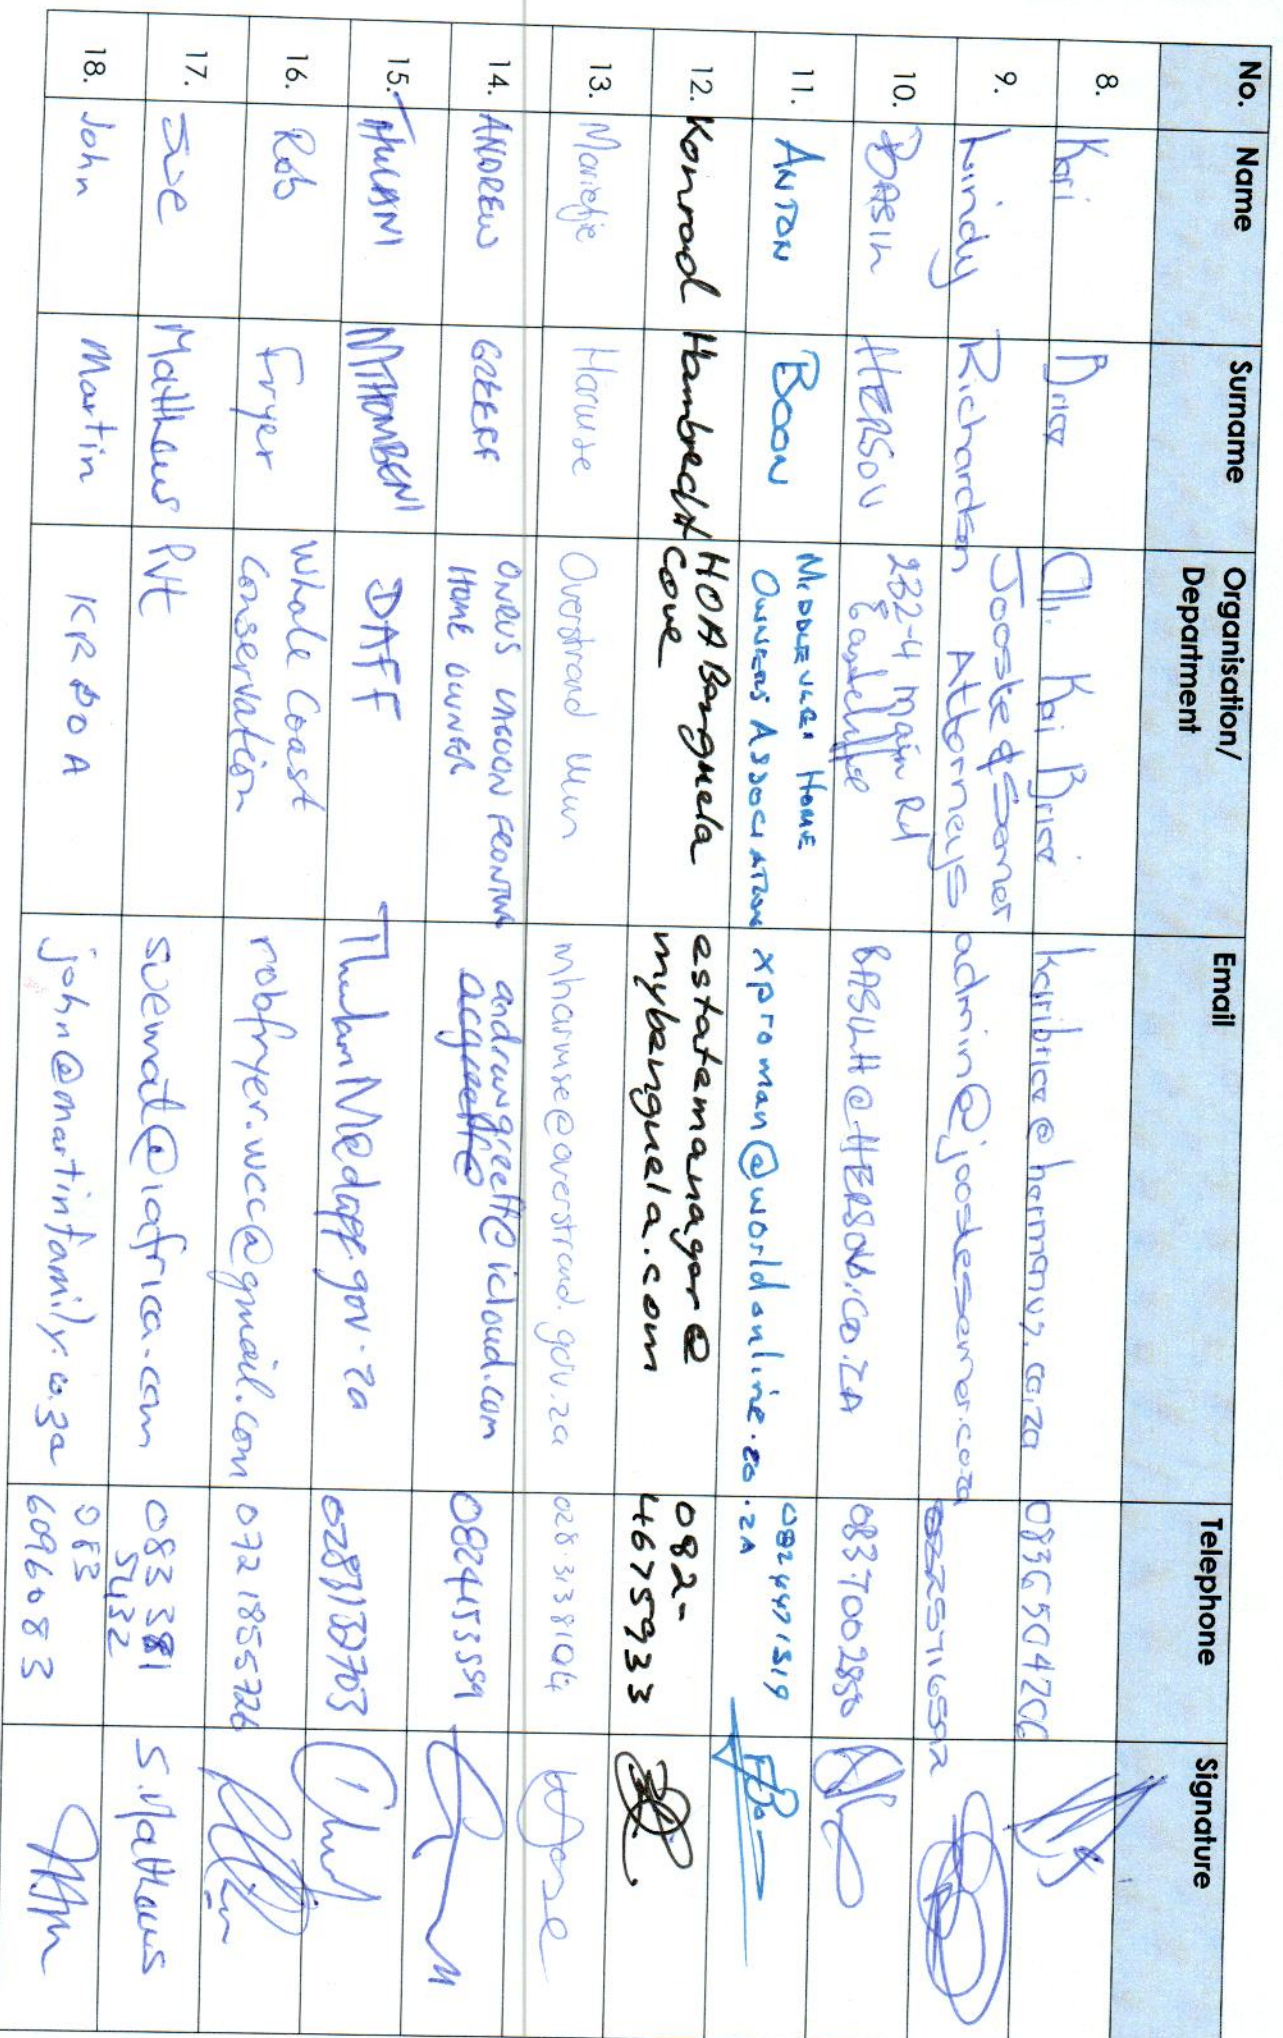 No. Name Surname Organisation/ Department Email Telephone Signature
8. Kari Brice Cllr. Kari Brice karibrice@hermanus.co.za
9. Lindy Richardson Jooste & Senner Attorneys
10. HERSOV Main Rd BASILH@HERSOV.CO.ZA 0837002880
11. ANTON BOON HOME OWNERS ASSOCIATION xproman@worldonline.co.za 0824471319
12. Konrad Hambrecht HOA Benguela Cove estatemanager@mybenguela.com 082-4675933
13. Marietjie Harmse Overstrand Mun mharmse@overstrand.gov.za 028 3138104
14. ANDREW GREEFF ONRUS LAGOON FRONTING HOME OWNER andrewgreeff@icloud.com 0824153559
15. THULANI DAFF
16. Rob Fryer Whale Coast Conservation robfryer.wcc@gmail.com 0721855726
17. Sue Matthews Pvt suemat@iafrica.com 083 381 5432 S. Matthews
18. John Martin KRDOA john@martinfamily.co.za 083 6096083